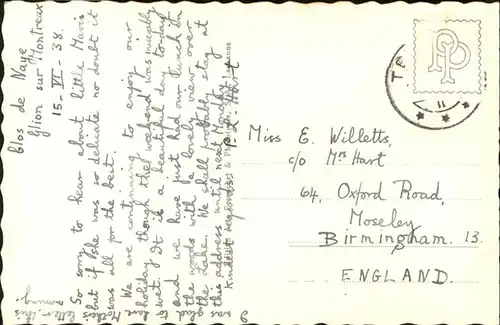 Clos de Naye
Glion sur Montreux
15-VI-38.
So sorry to hear about little Mavis
but if she was so delicate no doubt it
was all for the best.
We are continuing to enjoy our
holiday though the weekend was mercifully
wet. It is a beautiful day to-day
and we have just had our lunch in
the woods with a lovely view over
the Lake. We shall probably stay at
this address until next Monday.
Kindest regards
I was glad to have Mother's letter this
morning.
Miss E. Willetts,
c/o Mrs Hart
64, Oxford Road,
Moseley
Birmingham. 13.
ENGLAND.